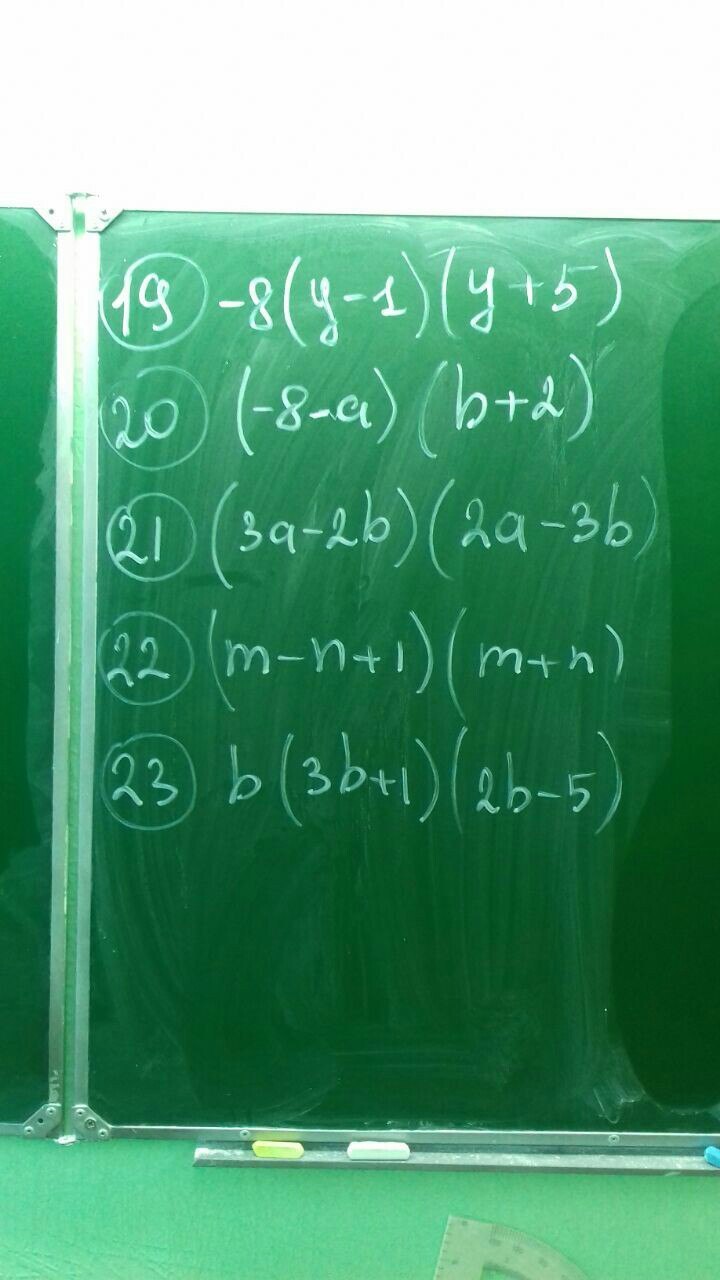 19 -8(y-1)(y+5)
20 (-8-a)(b+2)
21 (3a-2b)(2a-3b)
22 (m-n+1)(m+n)
23 b(3b+1)(2b-5)